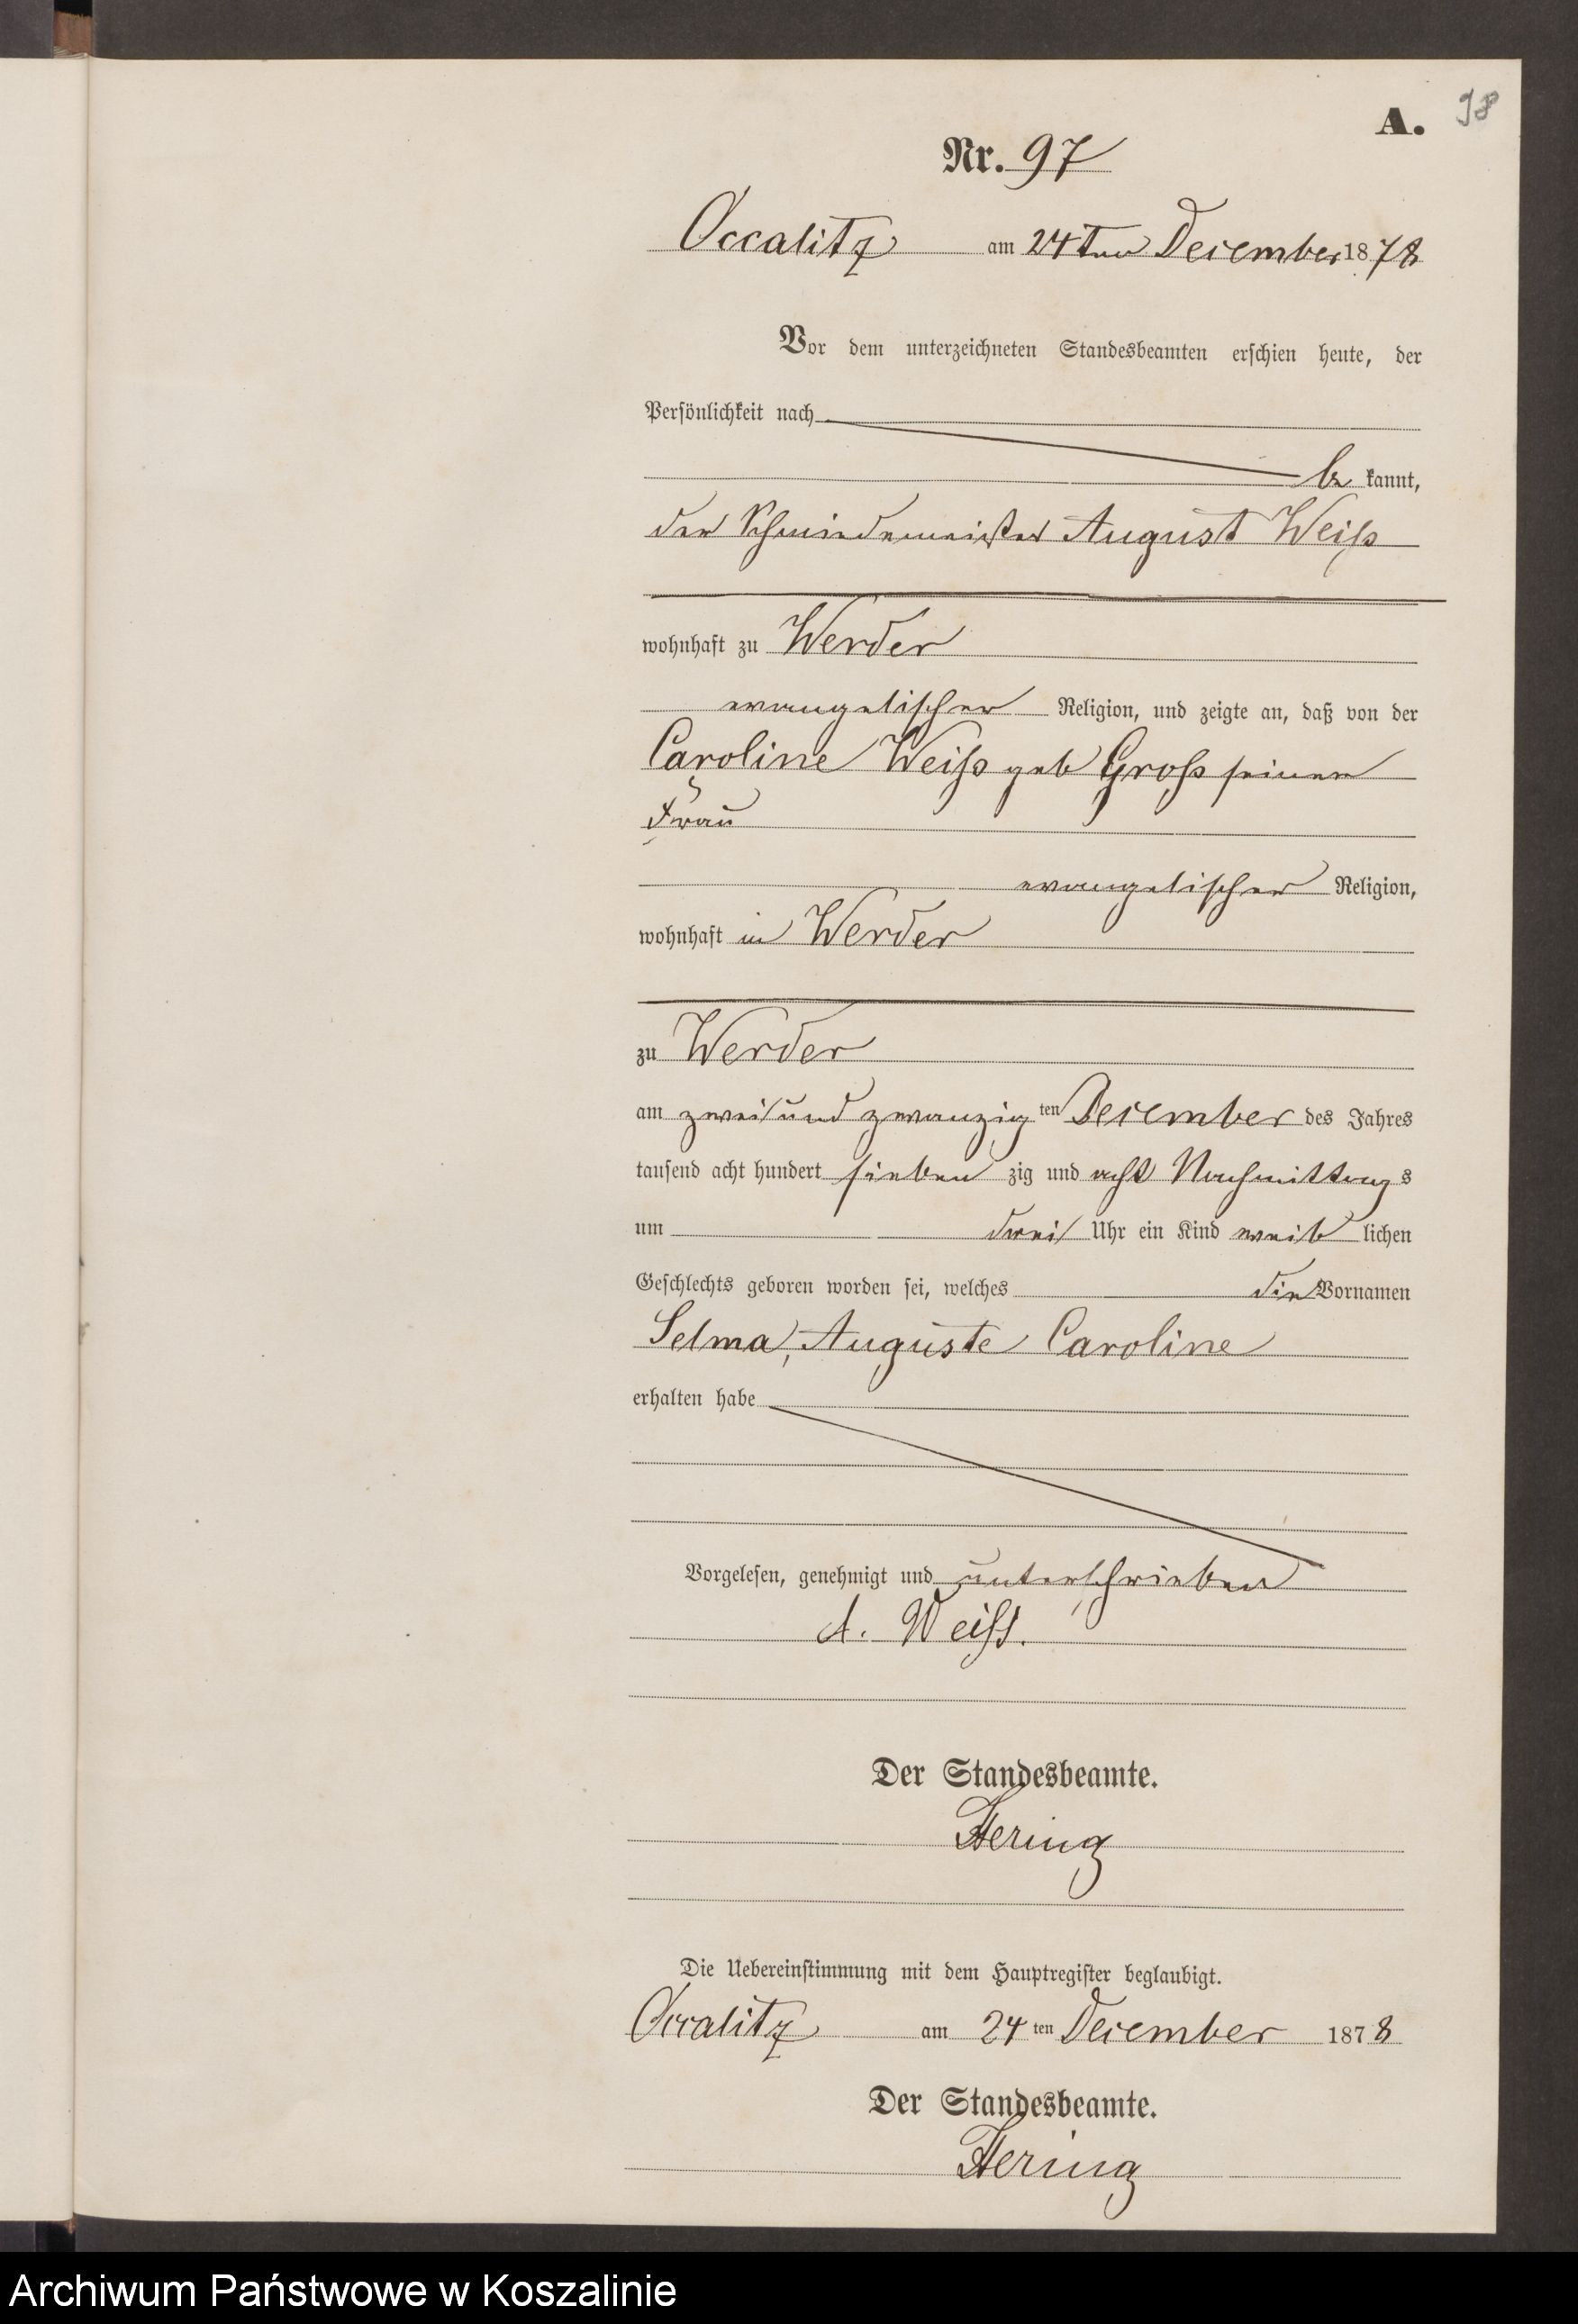 A. 98
Nr. 97
Occalitz am 24ten December 1878
Vor dem unterzeichneten Standesbeamten erschien heute, der
Persönlichkeit nach
be kannt,
der Schmiedemeister August Weiß
wohnhaft zu Werder
evangelischer Religion, und zeigte an, daß von der
Caroline Weiß geb Groß seiner
Frau
evangelischer Religion,
wohnhaft in Werder
zu Werder
am zwei und zwanzig ten December des Jahres
tausend acht hundert sieben zig und acht Nachmittags
um drei Uhr ein Kind weib lichen
Geschlechts geboren worden sei, welches die Vornamen
Selma, Auguste Caroline
erhalten habe
Vorgelesen, genehmigt und unterschrieben
A. Weiss.
Der Standesbeamte.
Hering
Die Uebereinstimmung mit dem Hauptregister beglaubigt.
Occalitz am 24 ten December 1878
Der Standesbeamte.
Hering
Archiwum Państwowe w Koszalinie